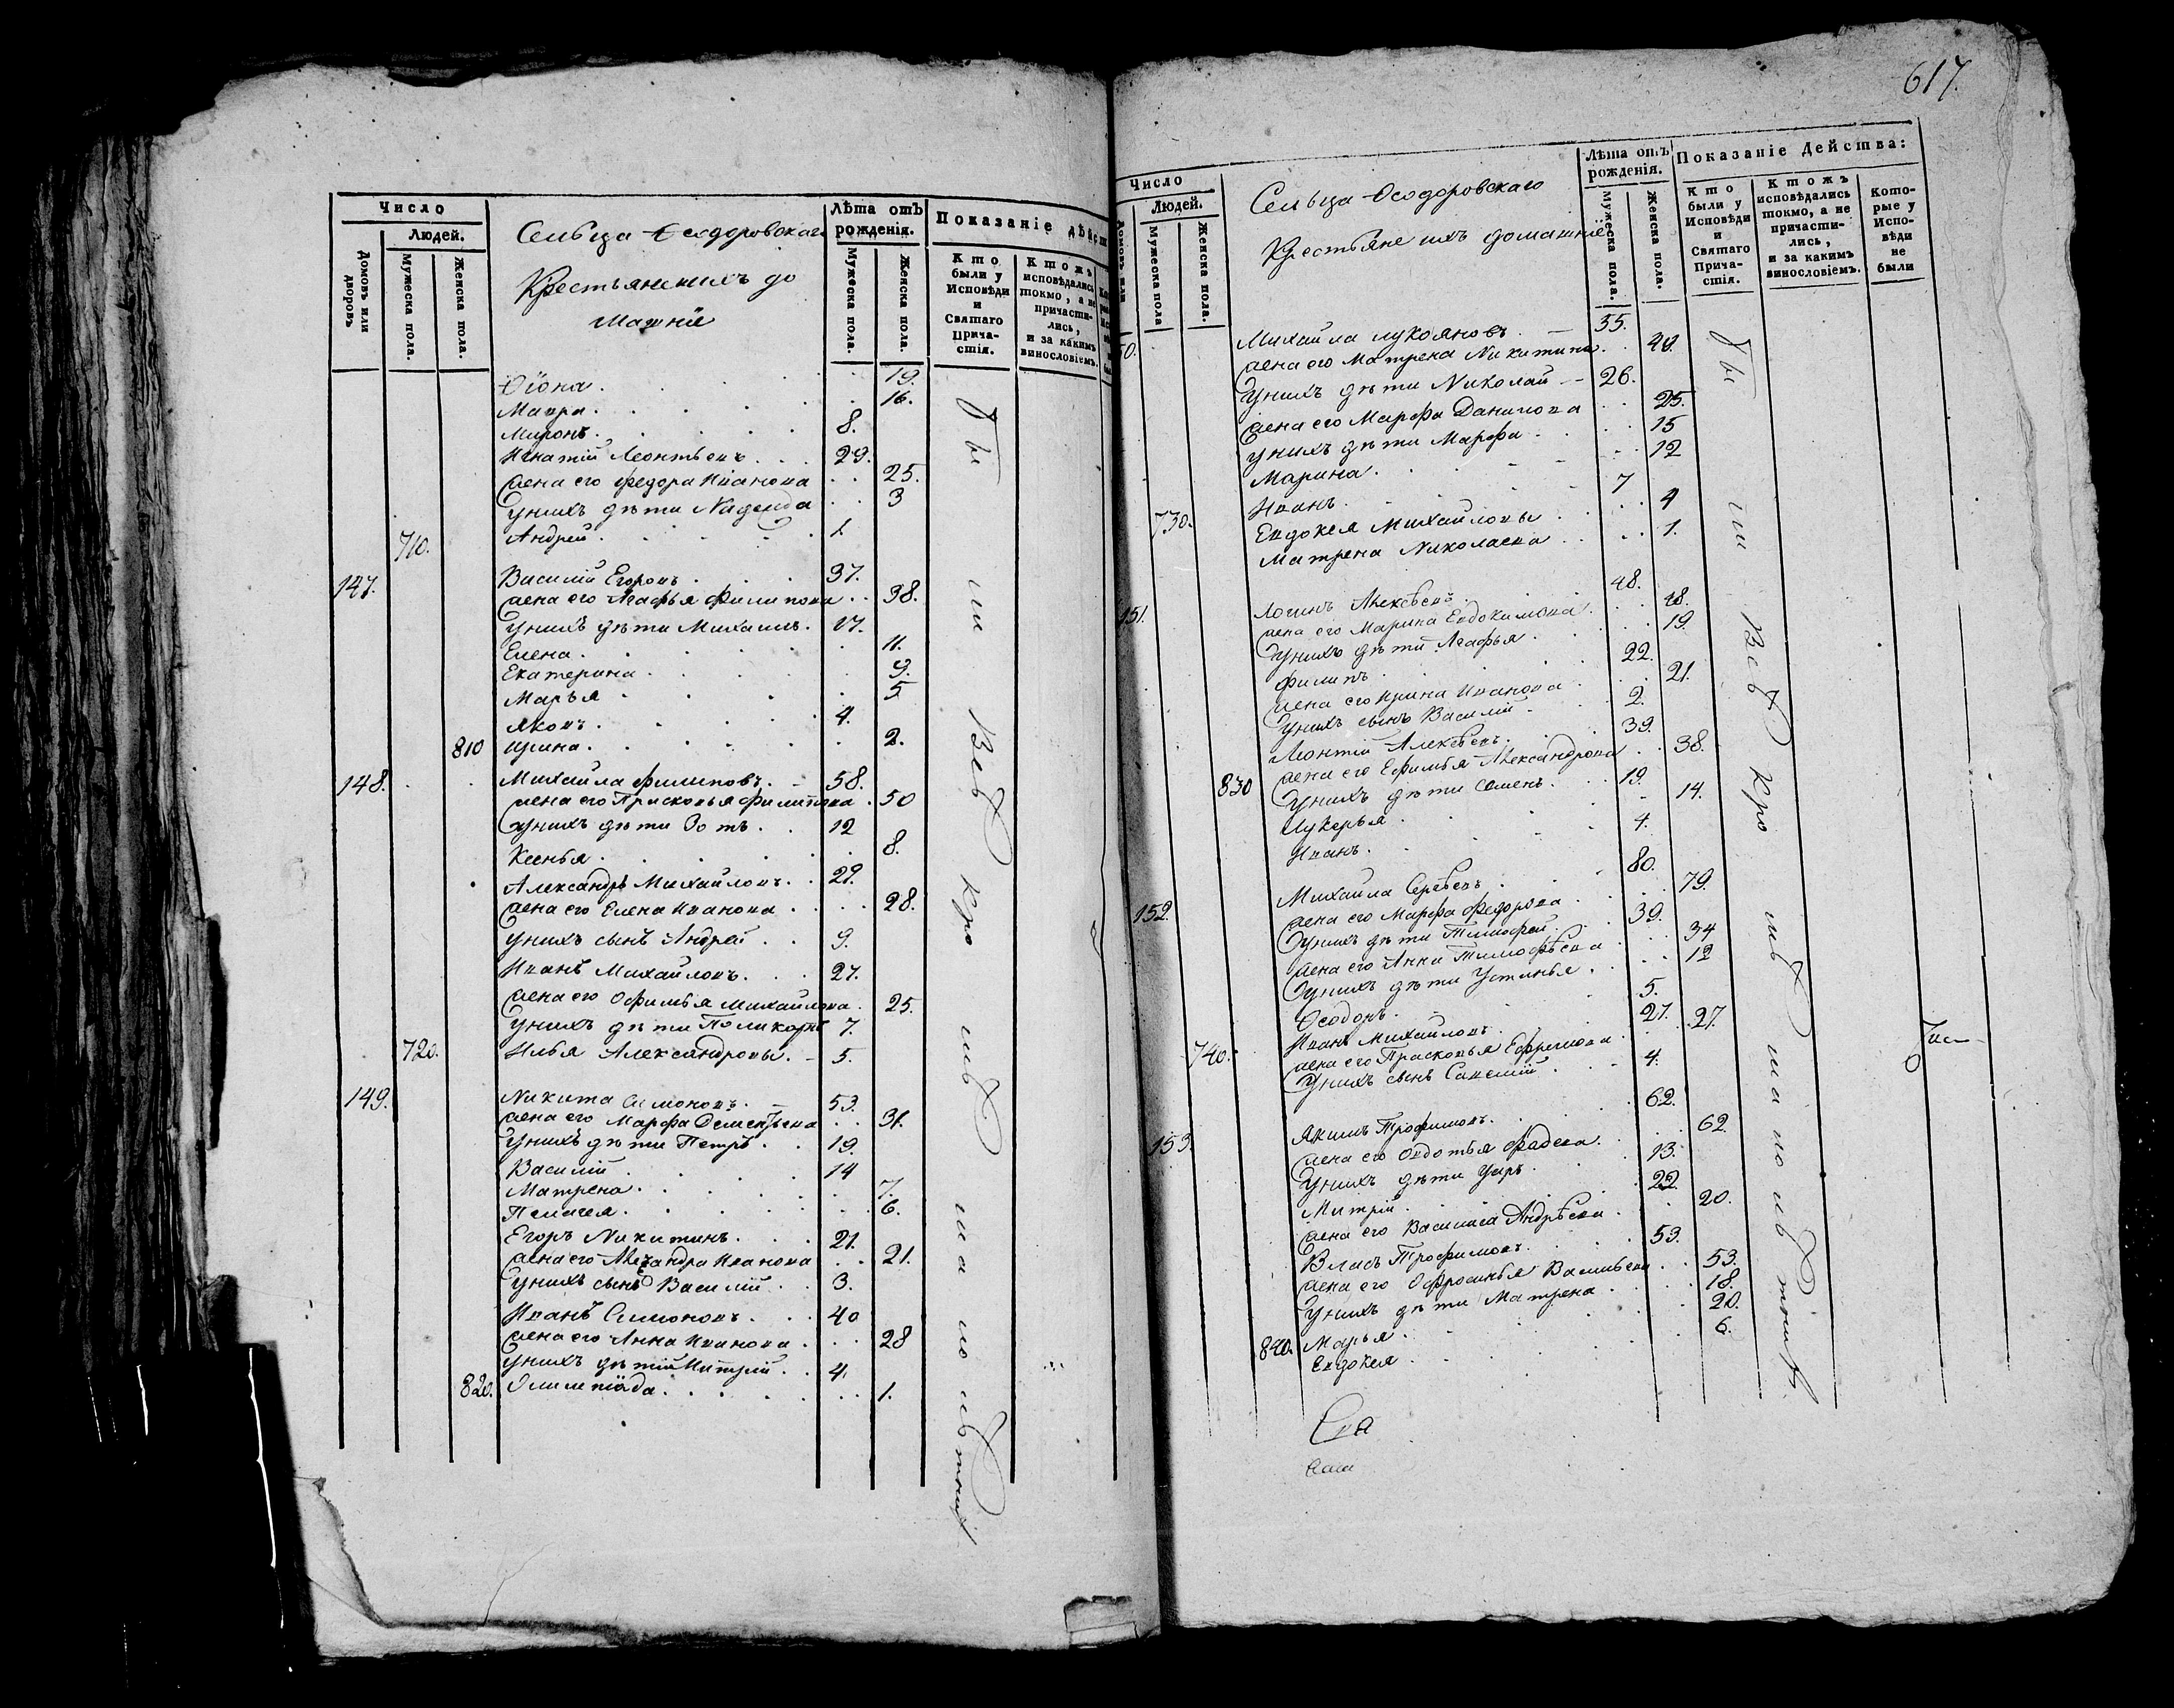 Число
Людей.
Домовъ или дворовъ
Мужеска пола.
Женска пола.
Сельца Ѳеодоровскаго
Крестьяне ихъ до
машніе
Лѣта отъ рожденія.
Мужеска пола.
Женска пола.
Показаніе дѣйст
Кто были у Исповѣди и Святаго Прича-стія.
Ктожъ исповѣдались токмо, а не причасти-лись, и за какимъ винословіемъ.
Ѳіона 19.
Мавра 16.
Миронъ 8.
Игнатій Леонтьевъ 29.
жена его Федора Иванова 25.
у нихъ дѣти Надежда 3
710. Андрей 1.
147. Василій Егоровъ 37.
жена его Агафья Филипова 38.
у нихъ дѣти Михаилъ 17.
Елена 11.
Екатерина 9.
Марья 5
Яковъ 4.
810 Ирина 2.
148. Михайла Филиповъ 58.
жена его Прасковья Филипова 50
у нихъ дѣти Зотъ 12
Ксенья 8.
Александръ Михайловъ 29.
жена его Елена Иванова 28.
у нихъ сынъ Андрей 9.
Иванъ Михайловъ 27.
жена его Офимья Михайлова 25.
у нихъ дѣти Поликарпъ 7.
720. Илья Александровы 5.
149. Никита Симоновъ 53.
жена его Марфа Дементьева 31.
у нихъ дѣти Петръ 19.
Василій 14
Матрена 7.
Пелагея 6.
Егоръ Никитинъ 21.
жена его Александра Иванова 21.
у нихъ сынъ Василій 3.
Иванъ Симоновъ 40
жена его Анна Иванова 28
у нихъ дѣти Митрій 4.
820. Олимпіада 1.
617.
Число
Людей.
Мужеска пола
Женска пола.
Сельца Ѳеодоровскаго
Крестьяне ихъ домашніе
Лѣта отъ рожденія.
Мужеска пола.
Женска пола.
Показаніе Действа:
Кто были у Исповѣди и Святаго Прича-стія.
Ктожъ исповѣдались токмо, а не причасти-лись, и за какимъ винословіемъ.
Кото-рые у Испо-вѣди не были
Михайла Лукояновъ 55.
жена его Матрена Никитина
у нихъ дѣти Николай 26.
жена его Марфа Данилова 25.
у нихъ дѣти Марфа 15
Марина 12
Иванъ 7
730. Евдокея Михайловы 4
Матрена Николаева 1.
151. Логинъ Алексѣевъ 48.
жена его Марина Евдокимова 48.
у нихъ дѣти Агафья 19.
Филипъ 22.
жена его Ирина Иванова 21.
у нихъ сынъ Василій 2.
Леонтій Алексѣевъ 39.
жена его Ефимья Александрова 38.
830 у нихъ дѣти Семенъ 19.
Лукерья 14.
Иванъ 4.
152. Михайла Сергѣевъ 80.
жена его Марфа Федорова 79.
у нихъ дѣти Тимофей 39.
жена его Анна Тимофѣева 34
у нихъ дѣти Устинья 12
Ѳеодоръ 5.
740. Иванъ Михайловъ 27.
жена его Прасковья Ефремова 27.
у нихъ сынъ Савелій 4.
153. Якимъ Трофимовъ 62.
жена его Овдотья Фадеева 62.
у нихъ дѣти Уаръ 13.
Митрій 22.
жена его Василиса Андрѣева 20.
Власъ Трофимовъ 53.
жена его Офросинья Васильева 53.
у нихъ дѣти Матрена 18.
840. Марья 20.
Евдокея 6.